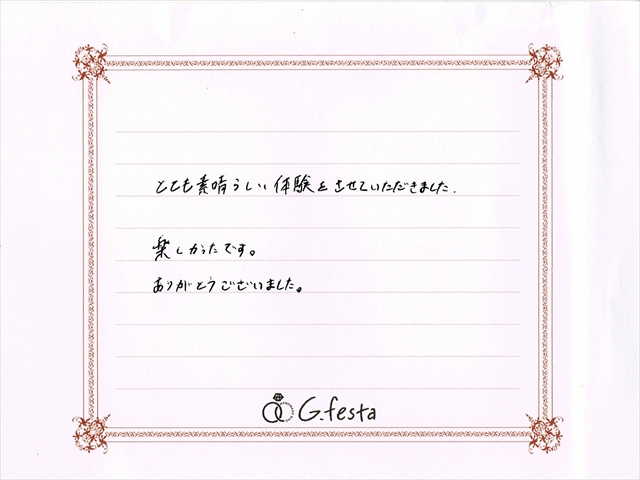 とても素晴らしい体験をさせていただきました.
楽しかったです。
ありがとうございました。
G.festa